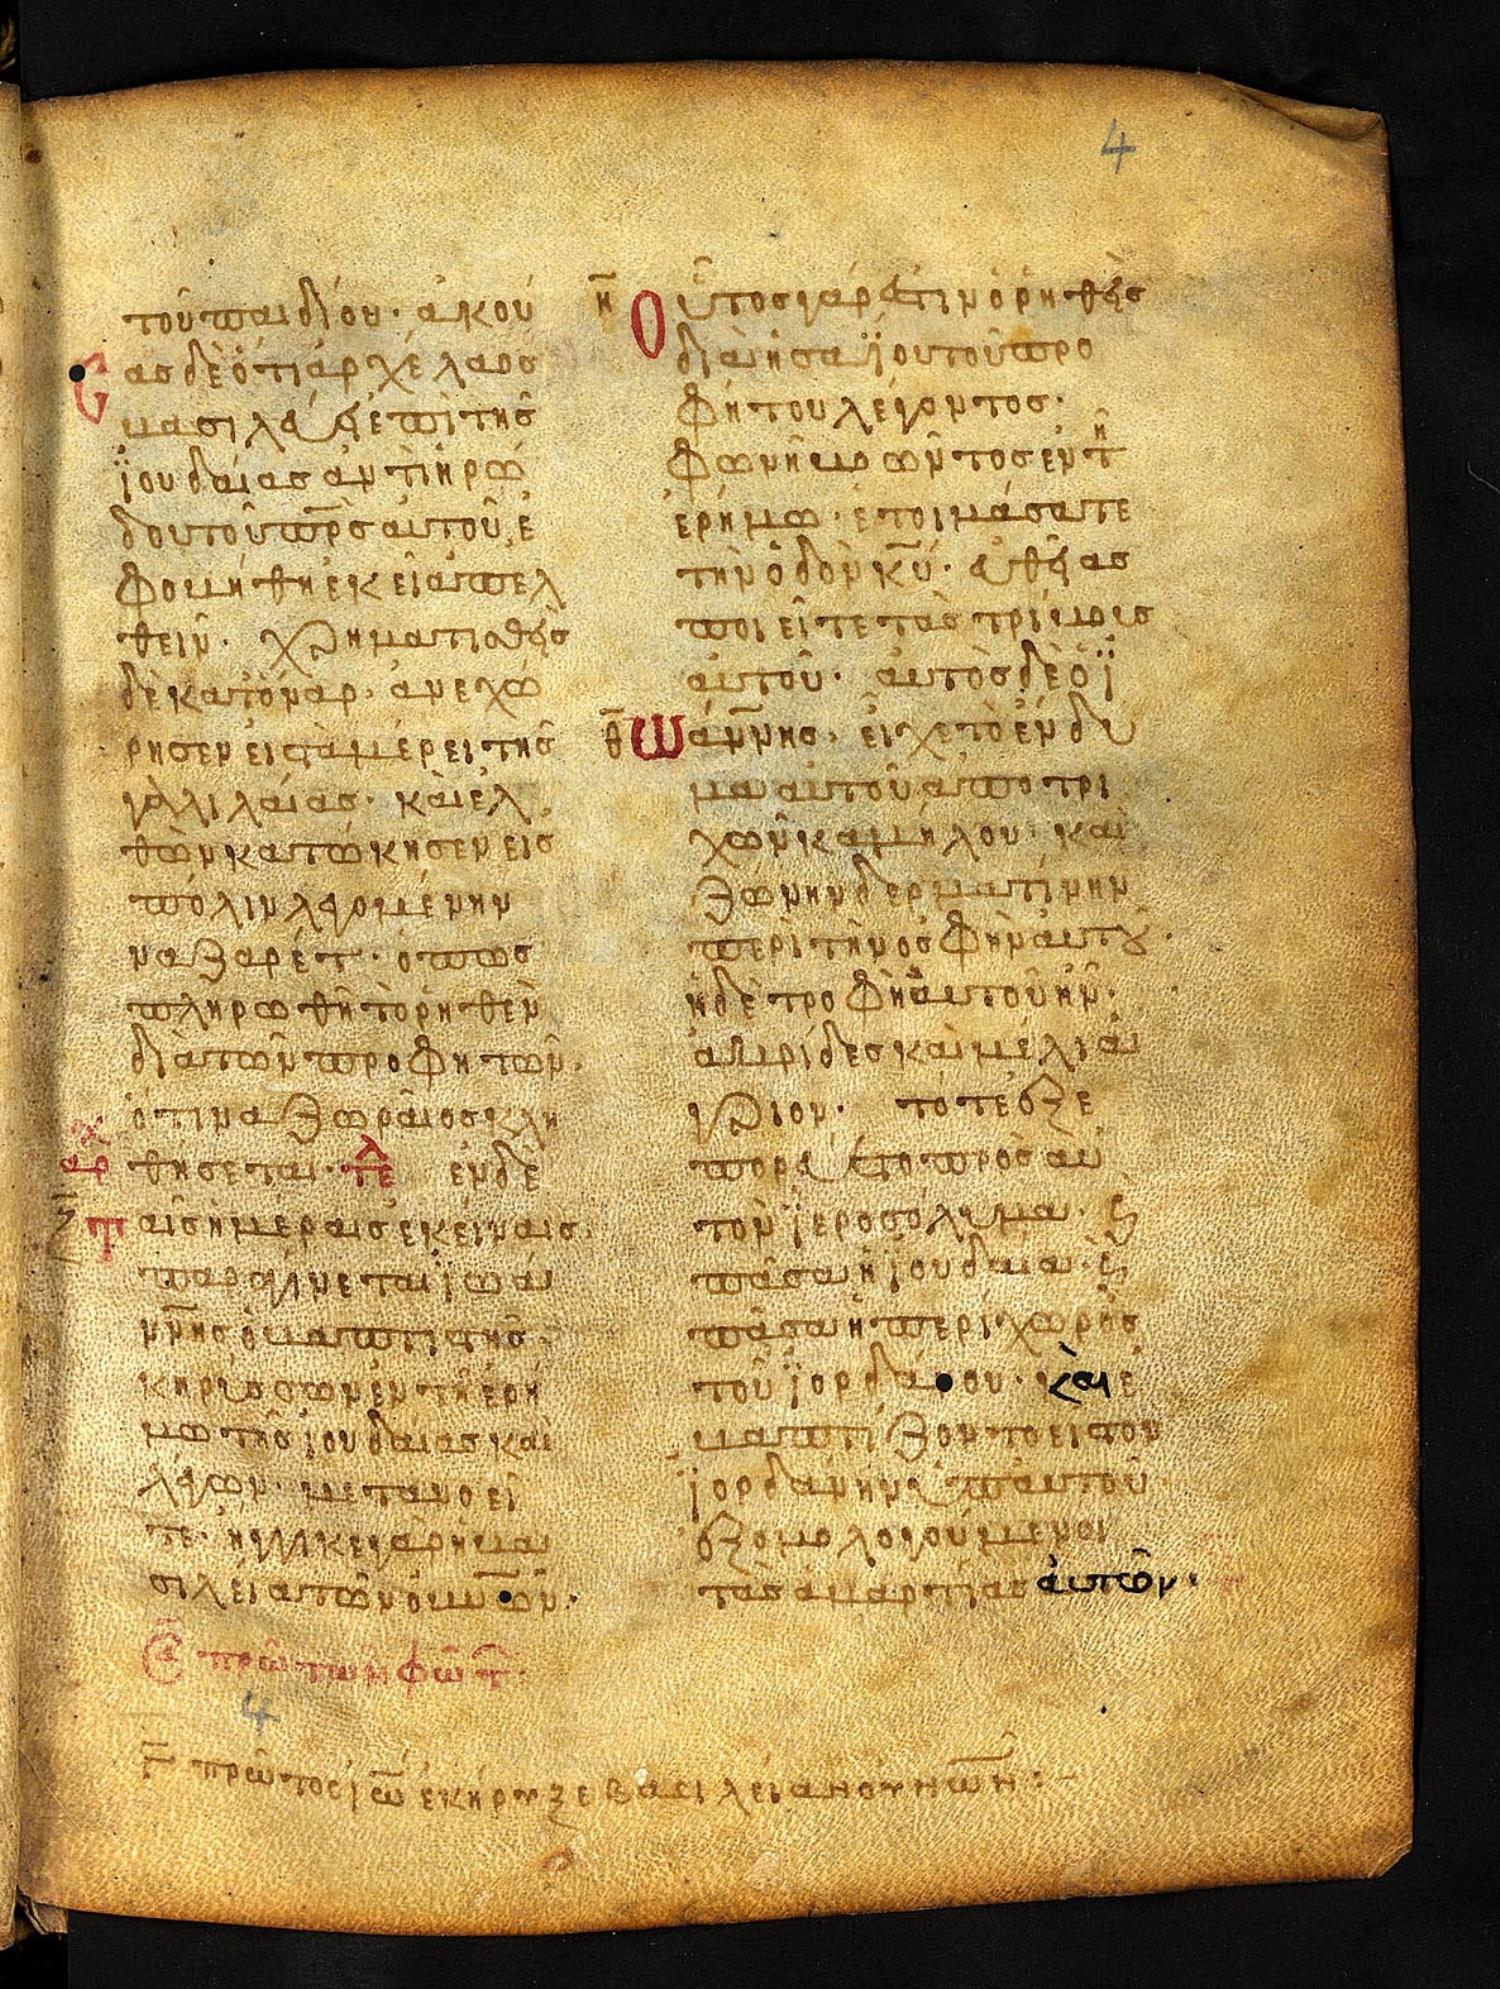 4
τοῦ παιδίου· ἀκού
σας δὲ ὅτι ἀρχέλαος
βασιλεύει ἐπὶ τῆς
ϊουδαίας ἀντὶ ἡρώ
δου τοῦ πρ̅ς αὐτοῦ, ἐ
φοβήθη ἐκεῖ ἀπελ
θεῖν· χρηματισθεὶς
δὲ κατ' ὄναρ· ἀνεχώ
ρησεν εἰς τὰ μέρει τῆς
γαλιλαίας· καὶ ἐλ
θὼν κατώκησεν εἰς
πόλιν λεγομένην
ναζαρέτ· ὅπως
πληρωθῆ τὸ ῥηθὲν
διὰ τῶν προφητῶν·
ὅτι ναζωραῖος κλη
θήσεται· τε̅λ ἐν δὲ
ταῖς ἡμέραις ἐκείναις
παραγίνεται ϊωά
νν̅ης ὁ βαπτιστῆς·
κηρύσσων ἐν τῆ ἐρή
μω τῆς ϊουδαίας καὶ
λέγων· μετανοεῖ
τε· ἤγγικε γὰρ ἡ βα
σιλεία τῶν οὐν̅ῶν·
η̅ Οὗτος γάρ ἐστιν ὁ ῥηθεὶς
διὰ ἠσαΐου τοῦ προ
φήτου λέγοντος·
φωνὴ βοῶντος ἐν τῆ
ἐρήμω· ἑτοιμάσατε
τὴν ὁδὸν κυ̅· εὐθείας
ποιεῖτε τὰς τρίβους
αὐτοῦ· αὐτὸς δὲ ὁ ϊ
θ̅ ωάνν̅ης· εἶχε τὸ ἔνδυ
μα αὐτοῦ ἀπὸ τρι
χῶν καμήλου· καὶ
ζώνην δερματίνην
περὶ τὴν ὀσφὴν αὐτοῦ·
ἡ δὲ τροφὴ αὐτοῦ ἦν·
ἀκρίδες καὶ μέλι ἄ
γριον· τότε ἐξε
πορεύετο πρὸς αὐ
τὸν ϊεροσόλυμα· κ̀
πᾶσα ἡ ϊουδαία· κ̀
πᾶσα ἡ περίχωρος
τοῦ ϊορδάνου· καὶ ἐ
βαπτίζοντο εἰς τὸν
ϊορδάνην ὑπ' αὐτοῦ
ἐξομολογούμενοι
τὰς ἁμαρτίας αὐτῶν·
πρῶ τῶν φώτ
4
πρῶτος ἰω̅ ἐκήρυξε βασιλείαν